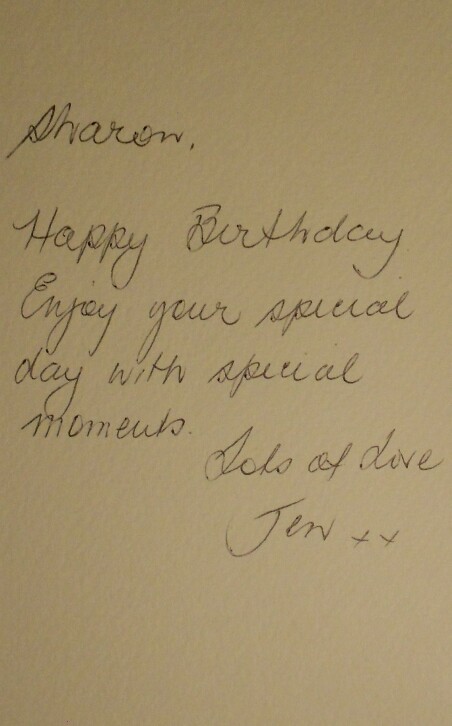 Sharon,
Happy Birthday
Enjoy your special
day with special
moments.
Lots of Love
Jen xx